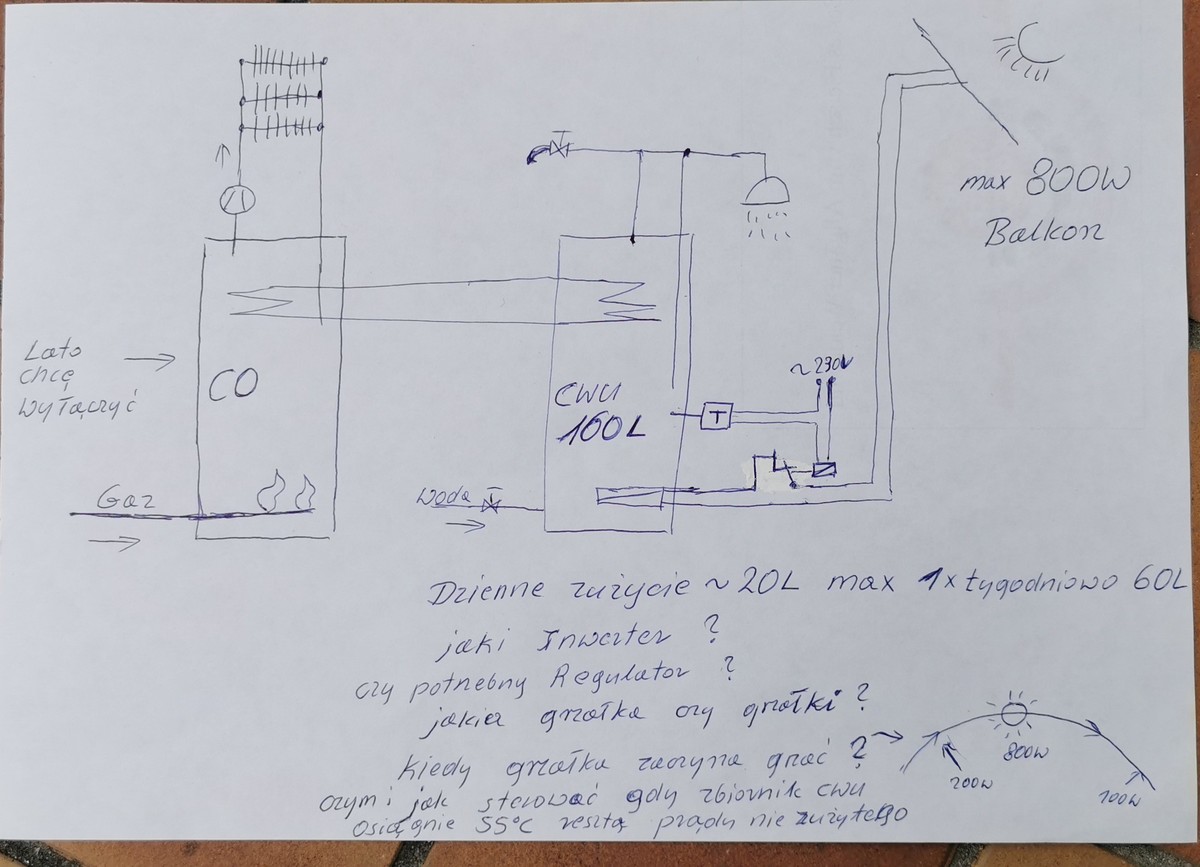 max 800W
Balkon
~230V
Lato
chcę
wyłączyć
CO
CWU
160L
T
Gaz
Woda
Dzienne zużycie ~ 20L max 1x tygodniowo 60L
jaki Inwerter ?
czy potrzebny Regulator ?
jakier grzałka czy grzałki ?
Kiedy grzałka zaczyna grzać ?
czym i jak sterować gdy zbiornik cwu
osiągnie 55°C resztą prądu nie zużytego
200W
800W
100W